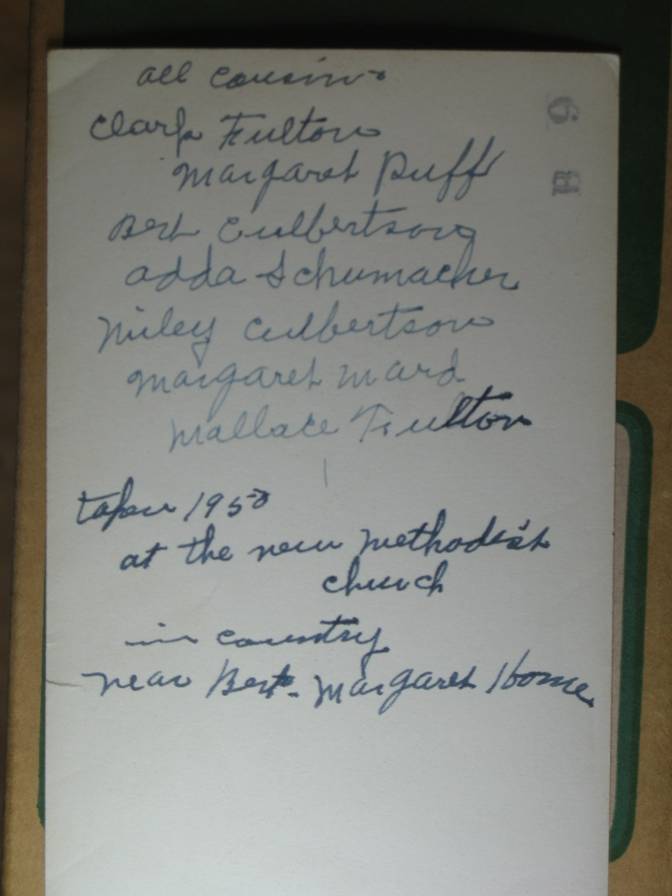 all cousins
Clark Fulton
Margaret Puff
Bert Culbertson
Adda Schumacher
Wiley Culbertson
Margaret Ward
Wallace Fulton
taken 1950
at the new Methodist
church
in country
near Bert - Margaret Home
6
H